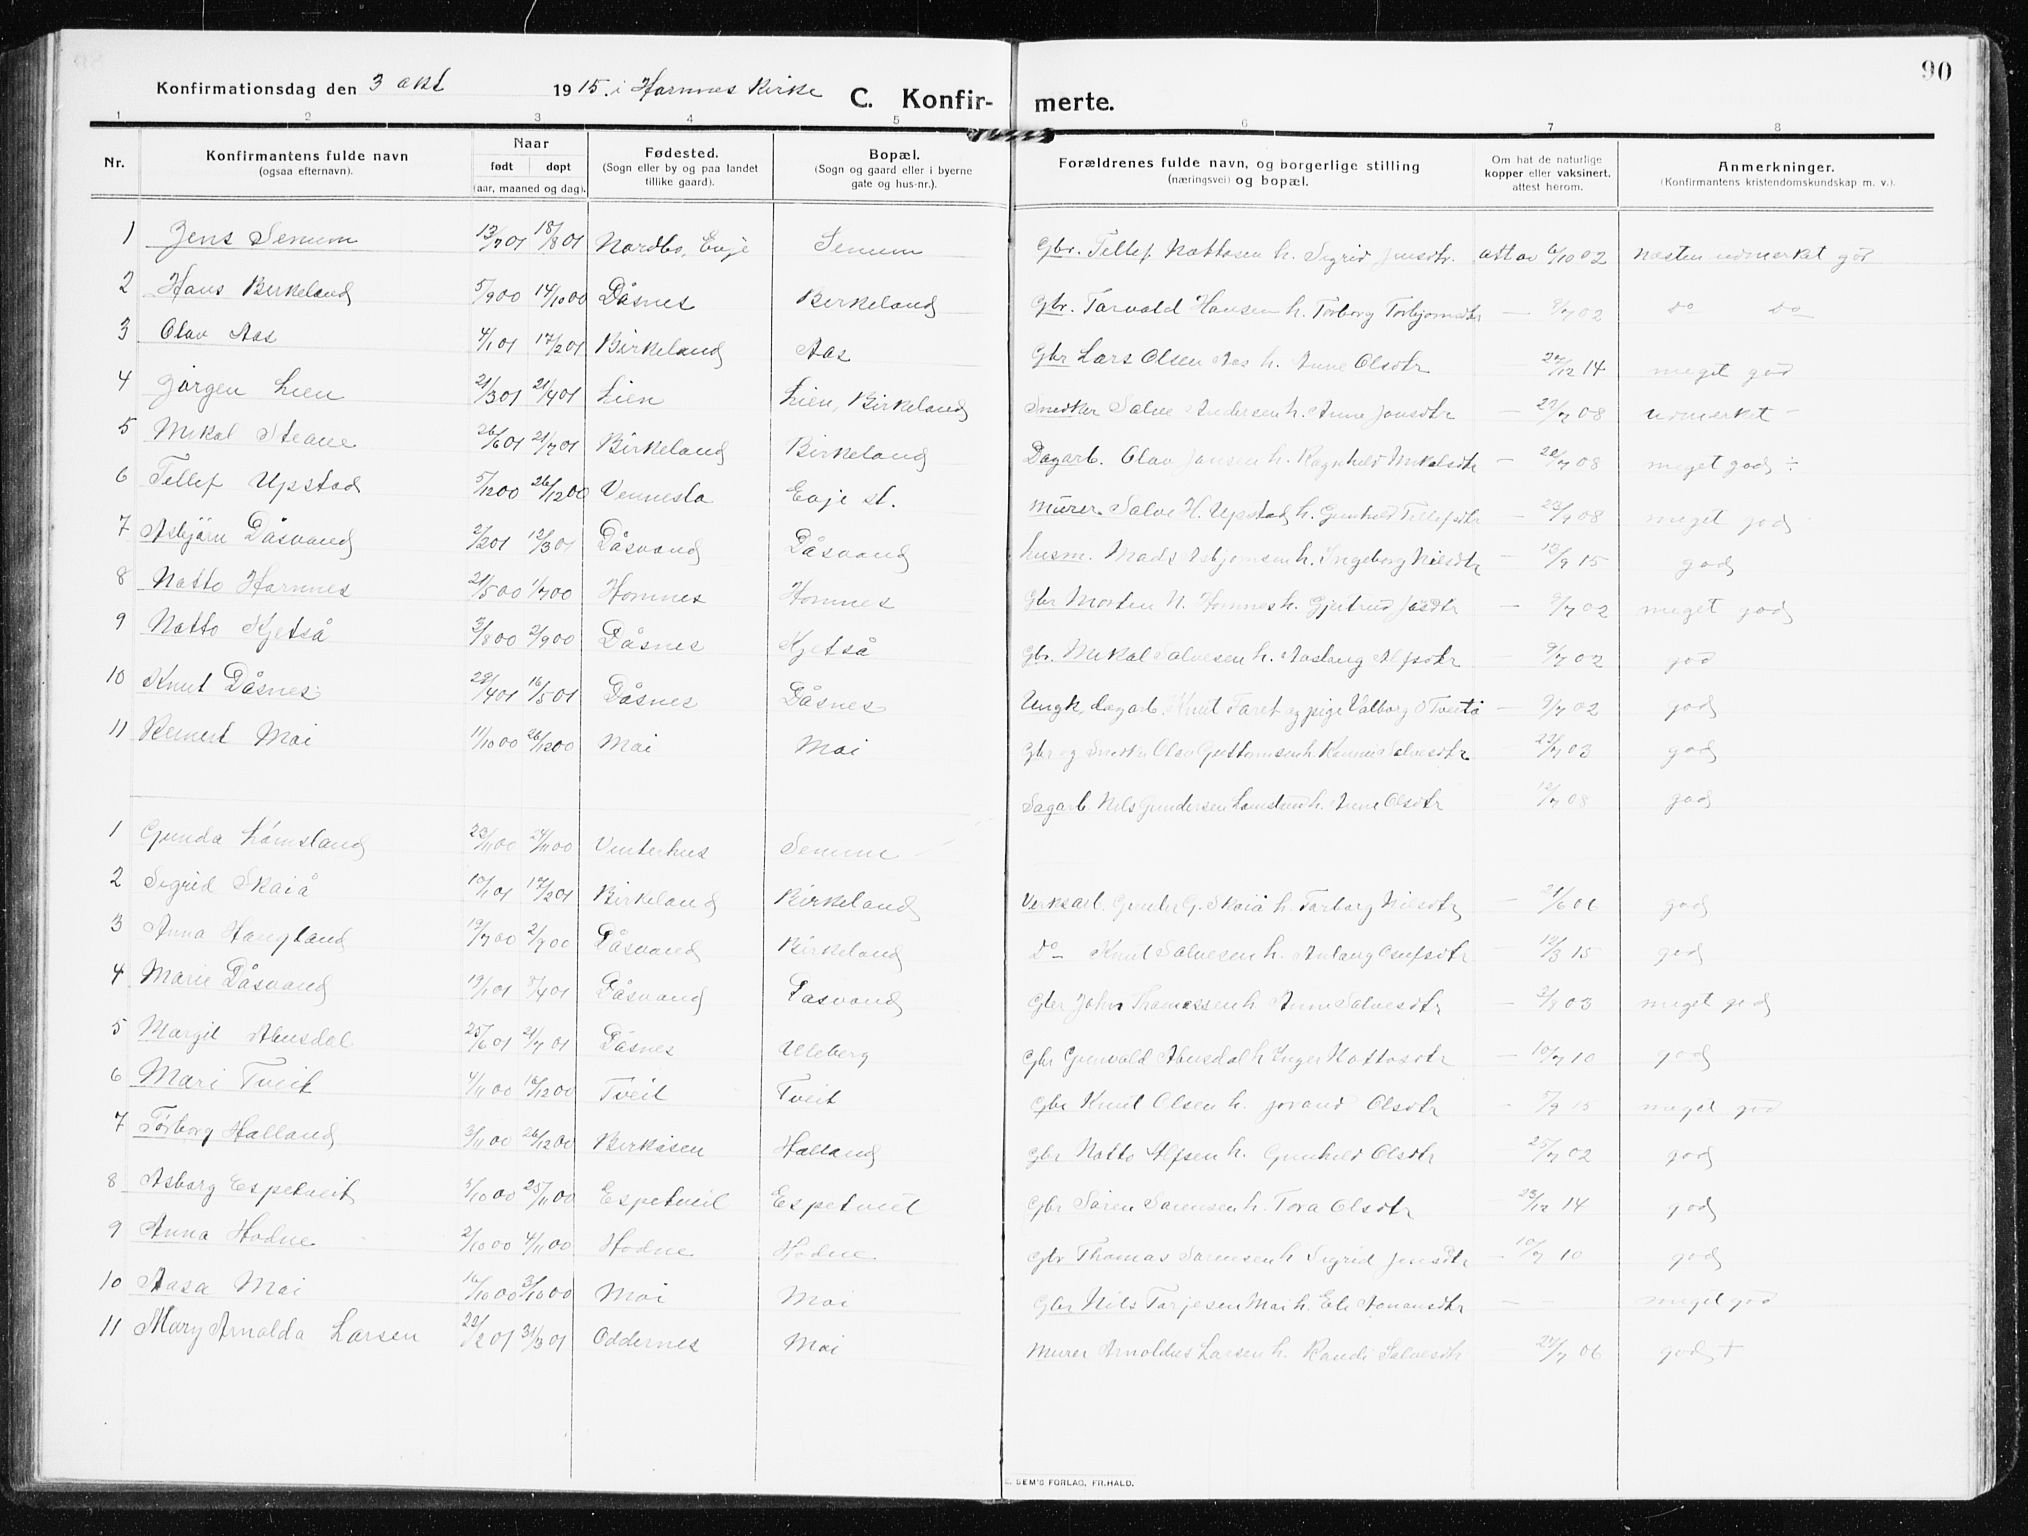 90
Konfirmationsdag den 3 okt 1915. i Hornnes Kirke C. Konfirmerte.
1 2 3 4 5 6 7 8
Nr. Konfirmantens fulde navn (ogsaa efternavn). Naar født døpt (aar, maaned og dag). Fødested. (Sogn eller by og paa landet tillike gaard). Bopæl. (Sogn og gaard eller i byerne gate og hus-nr.). Forældrenes fulde navn, og borgerlige stilling (næringsvei) og bopæl. Om hat de naturlige kopper eller vaksinert, attest herom. Anmerkninger. (Konfirmantens kristendomskundskap m. v.).
1 Jens Senum 13/7 01 18/8 01 Nordbo, Evje Senum Gbr. Tellef Nattosen h. Sigrid Jensdtr. att av 6/10 02 næsten udmerket god
2 Hans Birkeland 5/9 00 14/10 00 Dåsnes Birkeland Gbr. Torvald Hansen h. Torborg Torbjørnsdtr — 9/7 02 do do
3 Olav Aas 4/1 01 17/2 01 Birkeland Aas Gbr Lars Olsen Aas h. Anne Olsdtr 27/12 14 meget god
4 Jørgen Lien 21/3 01 21/4 01 Lien Lien, Birkeland Snedker Salve Andersen h. Anne Jonsdtr — 22/7 08 udmerket -
5 Mikal Steane 26/6 01 21/7 01 Birkeland Birkeland Dagarb. Olav Jansen h. Ragnhild Mikalsdtr — 22/7 08 meget god ÷
6 Tellef Upstad 5/12 00 26/12 00 Vennesla Evje st. Murer Salve H. Upstad h. Gunhild Tellefsdtr — 22/7 08 meget god
7 Asbjørn Dåsvand 2/2 01 12/3 01 Dåsvand Dåsvand husm. Mads Asbjørnsen h. Ingeborg Nilsdtr — 13/9 15 god
8 Natto Hornnes 21/5 00 1/7 00 Homnes Homnes Gbr Morten N. Homnes h. Gjertrud — 9/7 02 meget god
9 Natto Kjetså 3/8 00 2/9 00 Dåsnes Kjetså Gbr. Mikal Salvesen h. Aaslaug Alfsdtr — 9/7 02 god
10 Knut Dåsnes 22/4 01 16/5 01 Dåsnes Dåsnes Ungk, dagarb. Knut Faret og pige Valborg O Tveitå — 9/7 02 god
11 Reinert Moi 11/10 00 26/12 00 Moi Moi Gbr og Snedker Olav Guttormsen h. Salvesdtr — 23/7 03 god
Sagarb. Nils Gundersen h. Anne Olsdtr 12/7 08 god
1 Gunda Lømsland 23/11 00 24/11 00 Vinterhus Senum
2 Sigrid Skaiå 10/1 01 17/2 01 Birkeland Birkeland Verksarb. Gunder G. Skaiå h. Torborg Nilsdtr — 21/6 06 god
3 Anna Haugland 19/7 00 2/9 00 Dåsvand Birkeland Do - Knut Salvesen h. Aslaug — 12/3 15 god
4 Marie Dåsvand 19/1 01 8/4 01 Dåsvand Dasvand Gbr John Thomassen h Anne Salvesdtr — 3/7 03 meget god
5 Margit Abusdal 25/6 01 21/7 01 Dåsnes Uleberg Gbr Gunvald Abusdal h Inger Nattosdtr — 10/7 10 god
6 Mari Tveit 4/11 00 16/12 00 Tveit Tveit Gbr Knut Olsen h. Jorand Olsdtr — 5/9 15 meget god
7 Torborg Halland 3/11 00 26/12 00 Birkåsen Halland Gbr Natto Alfsen h. Gunhild Olsdtr — 25/7 02 god
8 Asborg Espetveit 3/10 00 25/11 00 Espetveit Espetveit Gbr Søren Sørensen h. Tora Olsdtr — 23/12 14 god
9 Anna Hodne 2/10 00 4/11 00 Hodne Hodne Gbr Thomas Sørensen h Sigrid Jensdtr — 10/7 10 god
10 Aasa Moi 16/10 00 3/10 00 Moi Moi Gbr Nils Tarjesen Moi h. Eli — — meget god
11 Mary Arnolda Larsen 22/2 01 31/3 01 Oddernes Moi Murer Arnoldus Larsen h. Randi Salvesdtr — 24/7 06 god +
SEM'S FORLAG, FR.HALD.